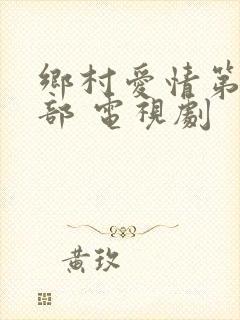 鄉村愛情第
部 電視劇
黃玫